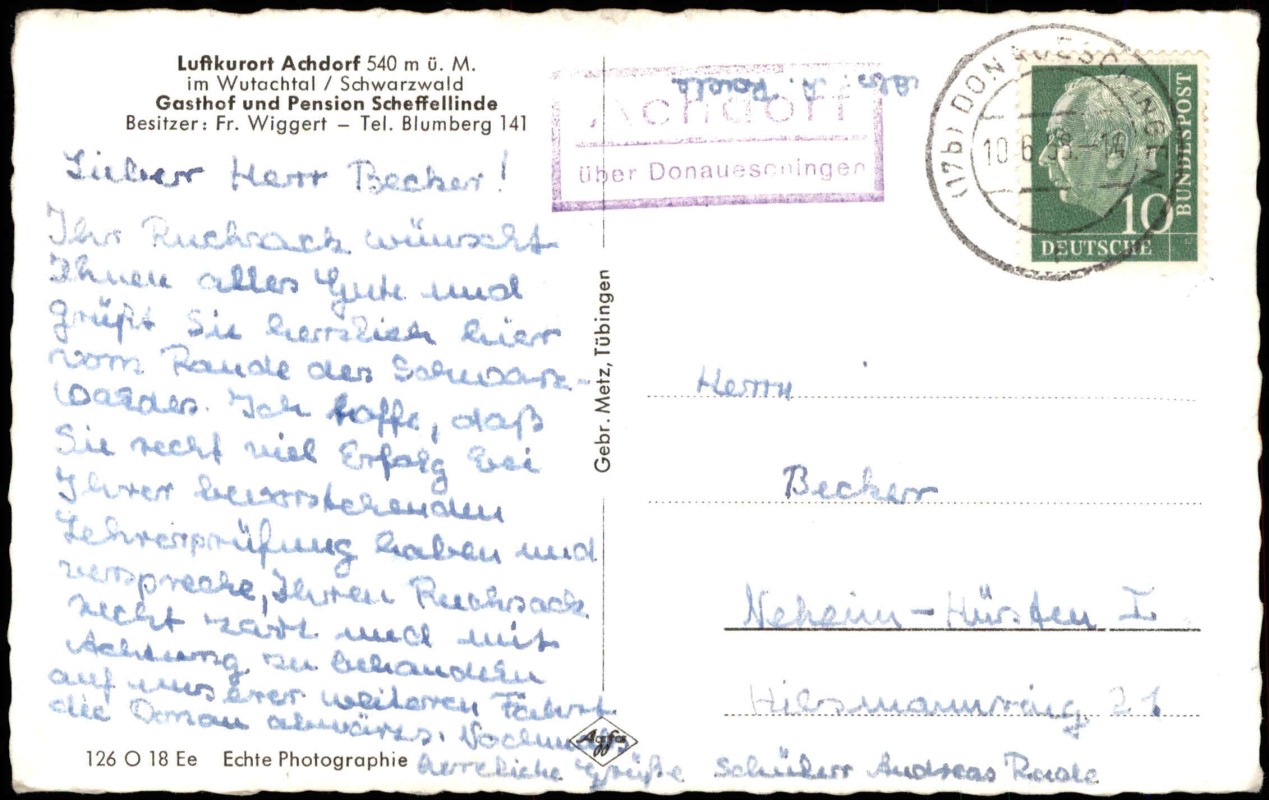 Luftkurort Achdorf 540 m ü. M.
im Wutachtal / Schwarzwald
Gasthof und Pension Scheffellinde
Besitzer: Fr. Wiggert – Tel. Blumberg 141
Lieber Herr Becker!
Ihr Rucksack wünscht
Ihnen alles Gute und
grüßt Sie herzlich hier
vom Rande des Schwarz-
waldes. Ich hoffe, daß
Sie recht viel Erfolg bei
Ihrer bevorstehenden
Lehrerprüfung haben und
verspreche, Ihren Rucksack
recht zart und mit
Achtung zu behandeln
auf unserer weiteren Fahrt
die Donau abwärts. Nochmals
herzliche Grüße Schüler Andreas Rade
126 O 18 Ee Echte Photographie
Agfa
Gebr. Metz, Tübingen
Abs. A.
Achdorf
über Donaueschingen
(17b) DONAUESCHINGEN
10.6. -14
10
DEUTSCHE
BUNDESPOST
Herrn
Becker
Neheim-Hüsten I.